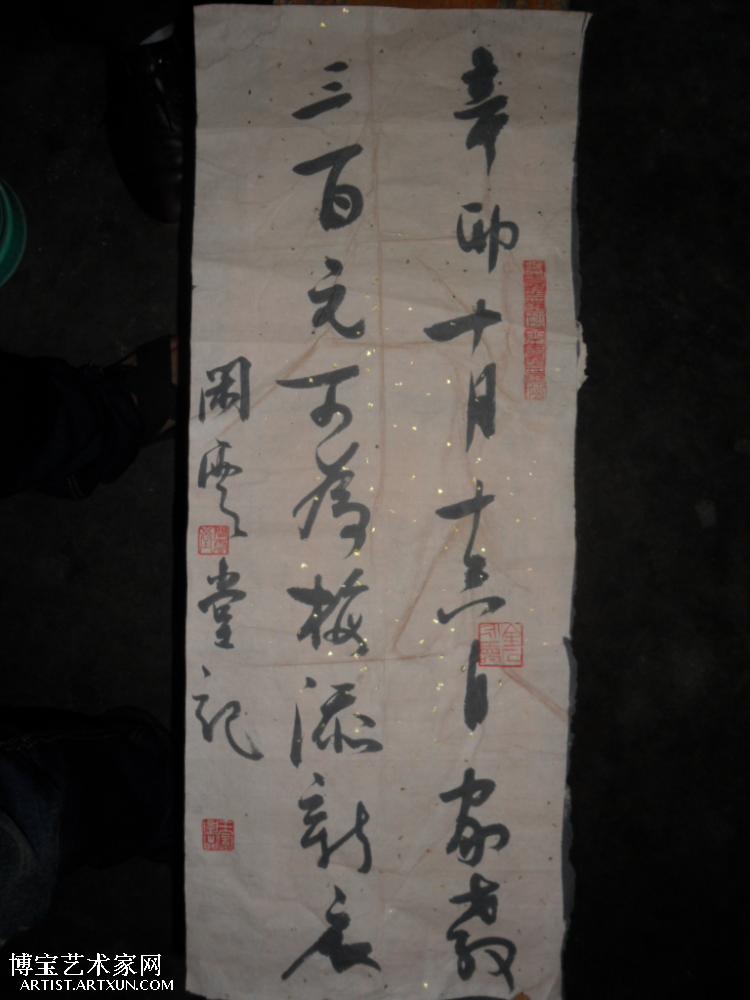 辛卯十月十六日家教
三百元可為梅添新衣
閑雲堂記
博宝艺术家网
ARTIST.ARTXUN.COM